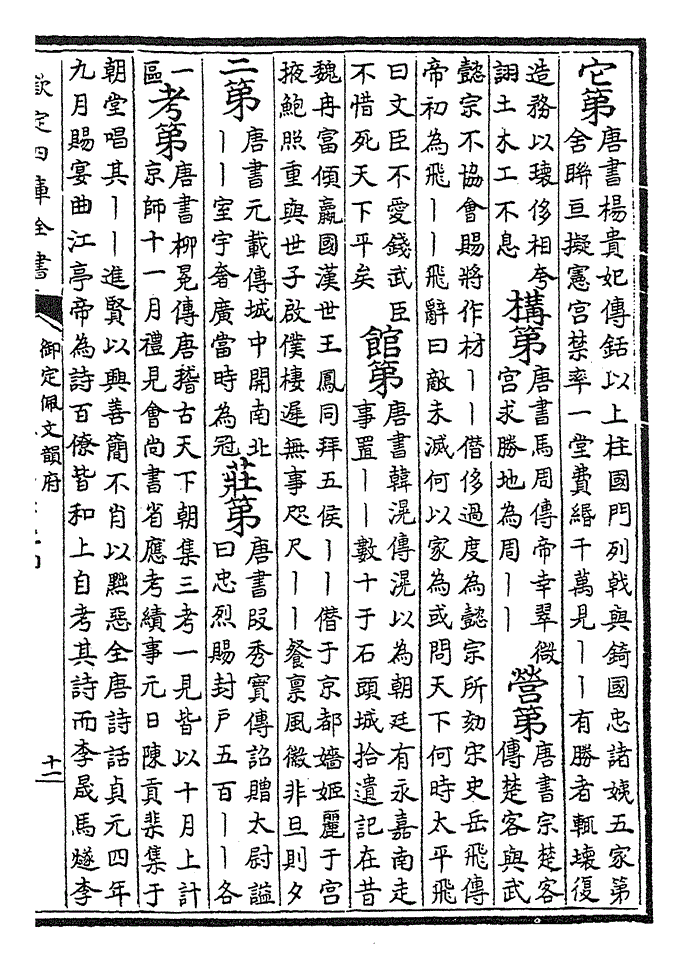 它第
唐書楊貴妃傳銛以上柱國門列戟與錡國忠諸姨五家第
舍聯亘擬憲宮禁率一堂費緡千萬見丨丨有勝者輒壞復
造務以瓌侈相夸
詡土木工不息
構第
唐書馬周傳帝幸翠微
宮求勝地為周丨丨
營第
唐書宗楚客
傳楚客與武
懿宗不協會賜將作材丨丨僣侈過度為懿宗所劾宋史岳飛傳
帝初為飛丨丨飛辭曰敵未滅何以家為或問天下何時太平飛
曰文臣不愛錢武臣
不惜死天下平矣
館第
唐書韓滉傳滉以為朝廷有永嘉南走
事置丨丨數十于石頭城拾遺記在昔
魏冉富傾嬴國漢世王鳳同拜五侯丨丨僣于京都嬙姬麗于宮
掖鮑照重與世子啟僕棲遲無事咫尺丨丨餐稟風微非旦則夕
二第
唐書元載傳城中開南北
丨丨室宇奢廣當時為冠
莊第
唐書段秀實傳詔贈太尉謚
曰忠烈賜封戶五百丨丨各
一
區
考第
唐書柳冕傳唐稽古天下朝集三考一見皆以十月上計
京師十一月禮見會尚書省應考績事元日陳貢棐集于
朝堂唱其丨丨進賢以興善簡不肖以黜惡全唐詩話貞元四年
九月賜宴曲江亭帝為詩百僚皆和上自考其詩而李晟馬燧李
欽定四庫全書
御定佩文韻府
十一